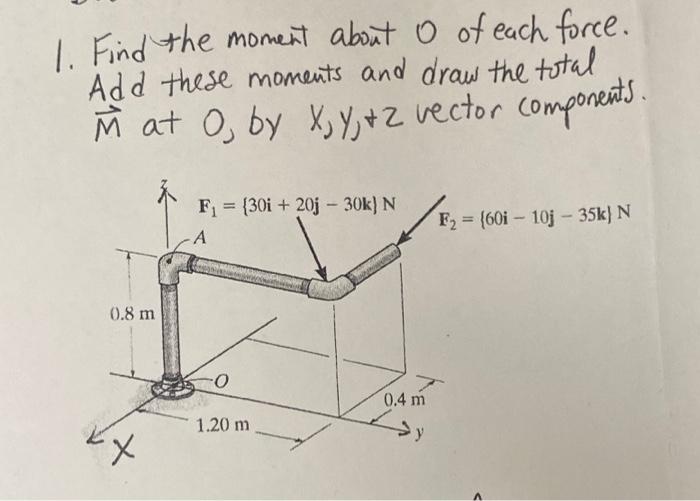 1. Find the moment about O of each force.
Add these moments and draw the total
M⃗ at O, by X, Y, + Z vector components.
z
F₁ = {30i + 20j − 30k} N
F₂ = {60i − 10j − 35k} N
A
0.8 m
O
0.4 m
1.20 m
y
X